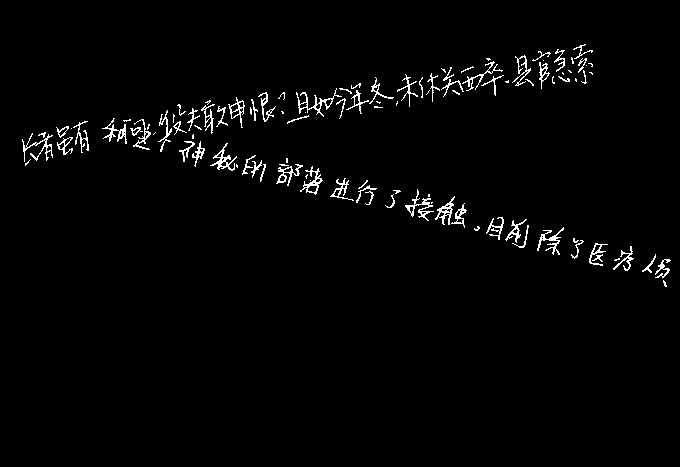 长者虽有 役夫敢申恨?且如今年冬,未休关西卒.县官急索
神秘的部落进行了接触。目前除了医疗人员